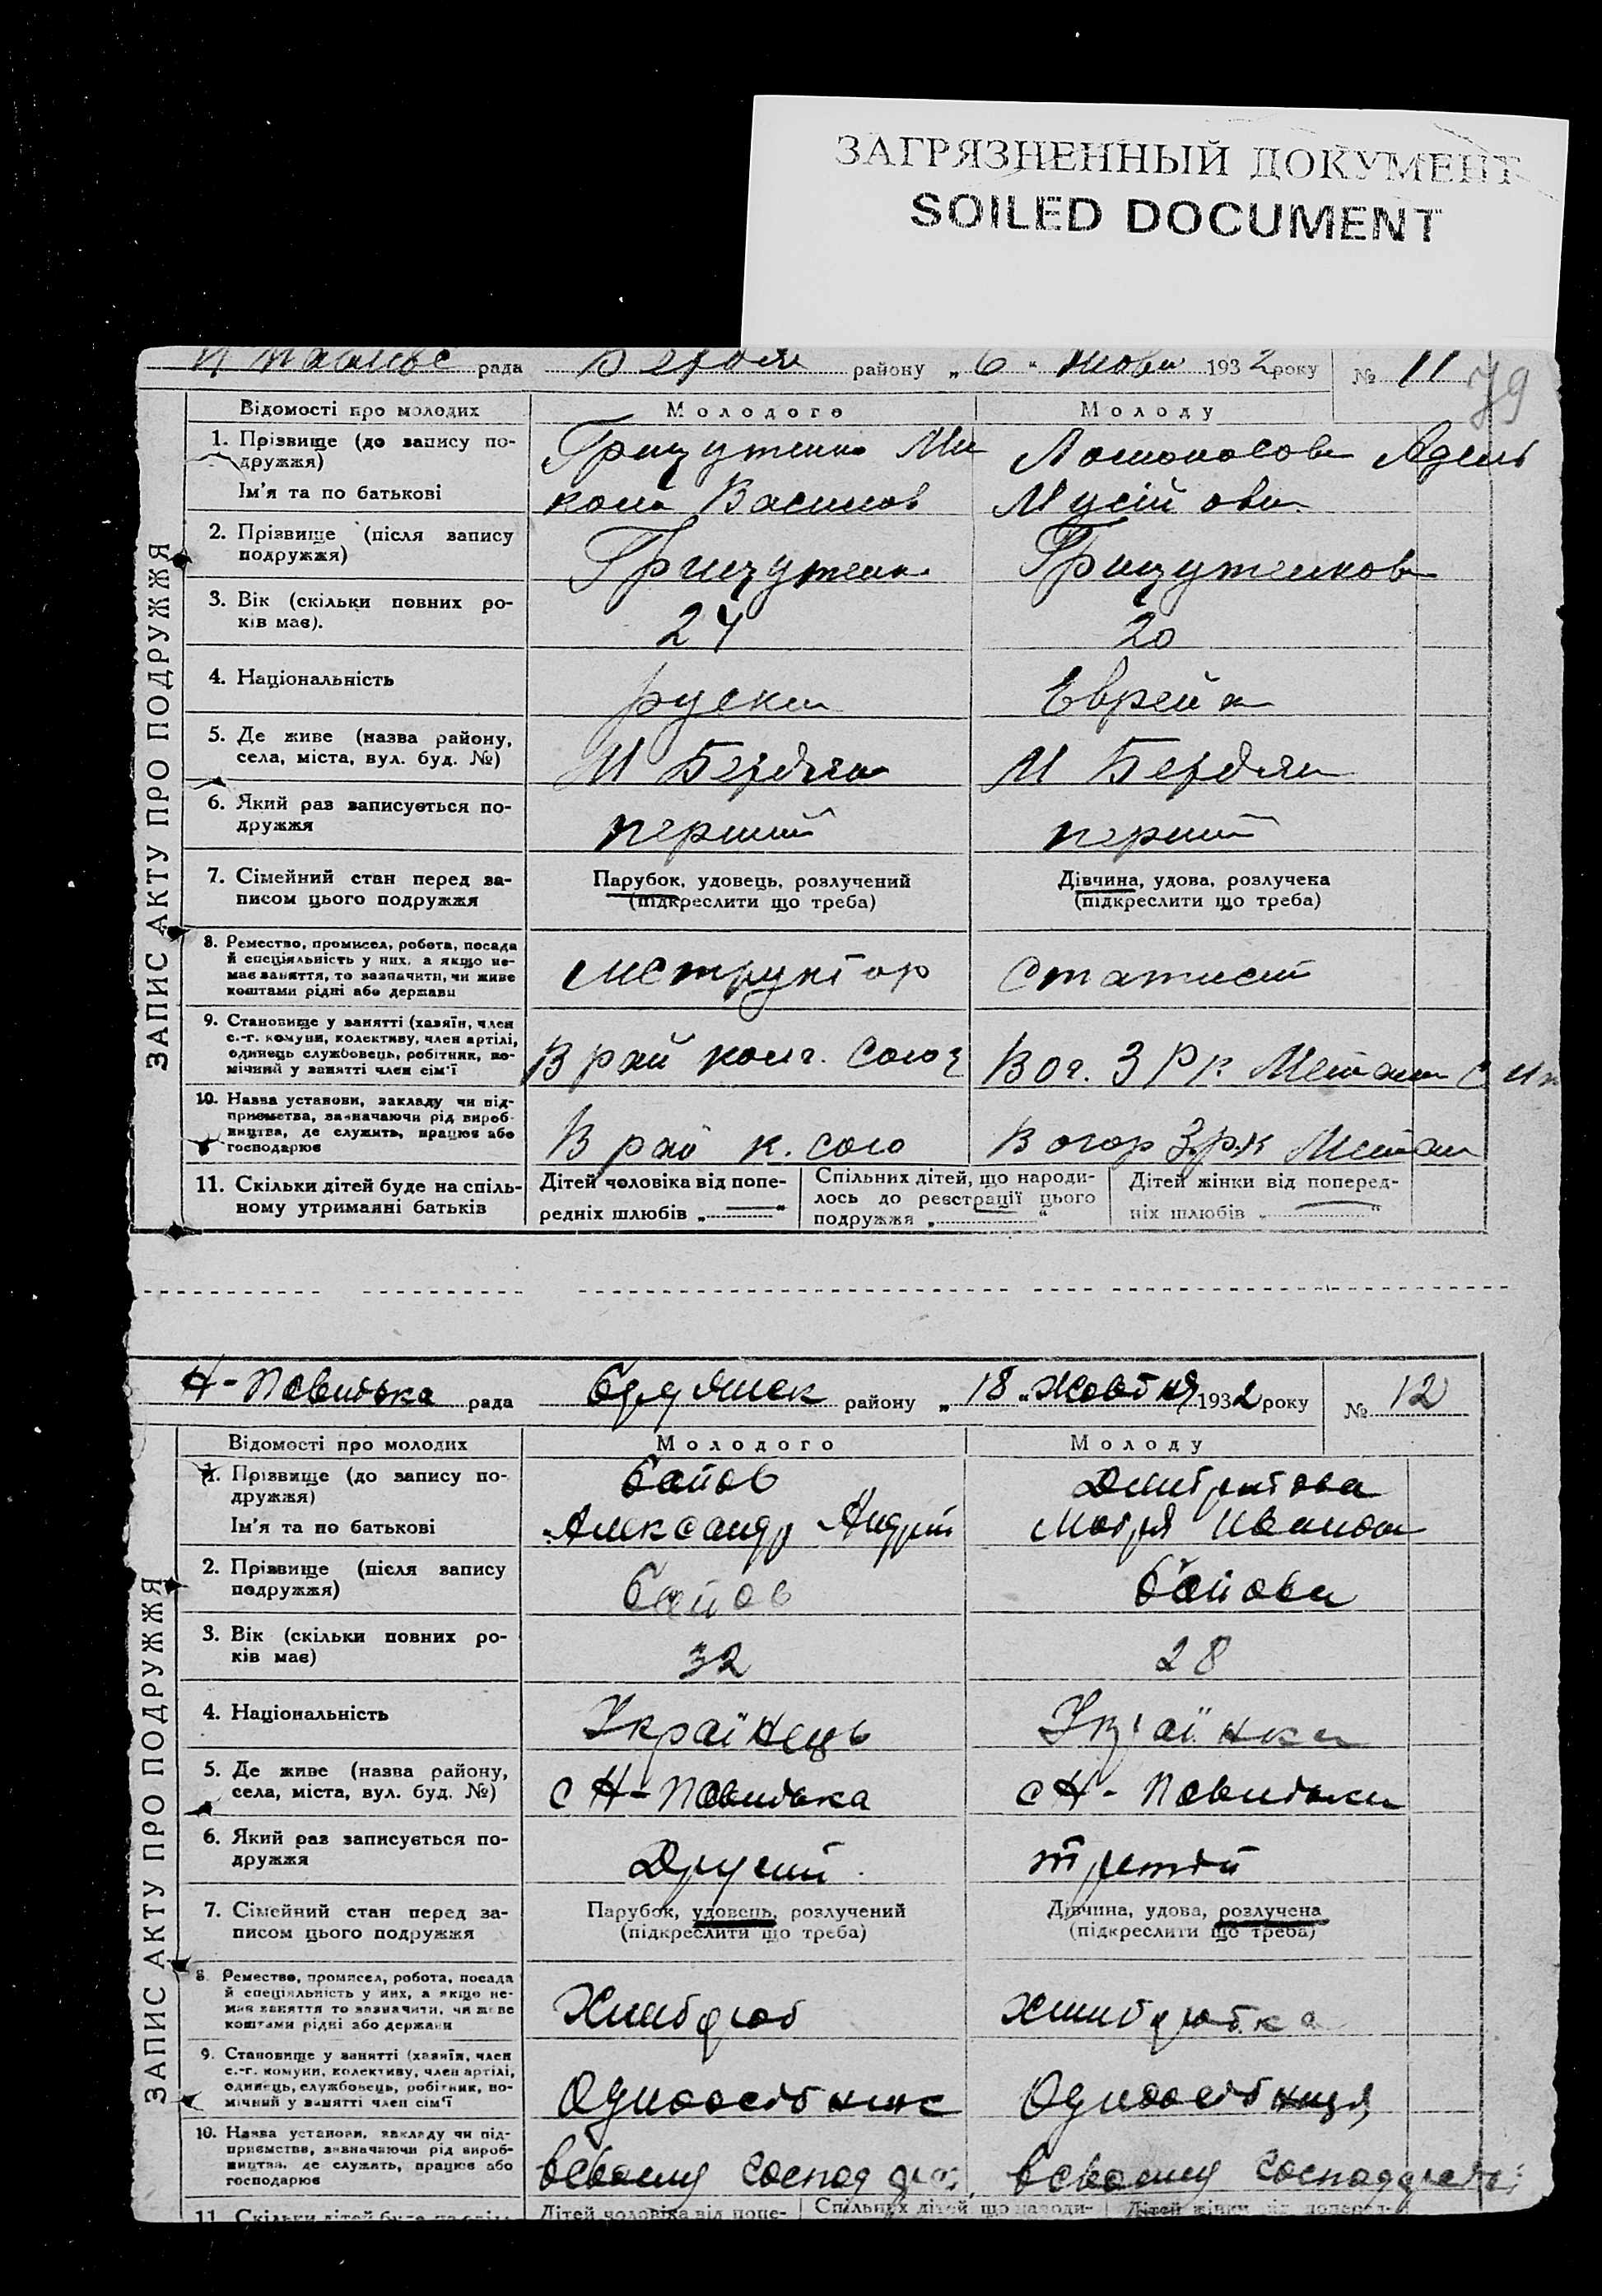 ЗАГРЯЗНЕННЫЙ ДОКУМЕНТ
SOILED DOCUMENT
рада району „6“ 1932 року № 11
79
ЗАПИС АКТУ ПРО ПОДРУЖЖЯ
Відомості про молодих Молодого Молоду
1. Прізвище (до запису по-
дружжя)
Ім’я та по батькові
Ми
Василов
Ломоносова
2. Прізвище (після запису
подружжя)
3. Вік (скільки повних ро-
ків має).
24 20
4. Національність
Еврейка
5. Де живе (назва району,
села, міста, вул. буд. №)
М Бердян М Бердян
6. Який раз записується по-
дружжя
перший перший
7. Сімейний стан перед за-
писом цього подружжя
Парубок, удовець, розлучений
(підкреслити що треба)
Дівчина, удова, розлучена
(підкреслити що треба)
8. Ремество, промисел, робота, посада
й спеціяльність у них, а якщо не-
має заняття, то зазначити, чи живе
коштами рідні або держави
інструктор статист
9. Становище у занятті (хазяїн, член
с.-г. комуни, колективу, член артілі,
одинець службовець, робітник, по-
мічний у занятті член сім’ї
В рай колг. союз
10. Назва установи, закладу чи під-
приємства, зазначаючи рід вироб-
ництва, де служить, працює або
господарює
В рай к. сою
11. Скільки дітей буде на спіль-
ному утриманні батьків
Дітей чоловіка від попе-
редніх шлюбів „—“
Спільних дітей, що народи-
лось до реєстрації цього
подружжя „ “
Дітей жінки від поперед-
ніх шлюбів „—“
рада району „18„ Жовтня 1932 року № 12
ЗАПИС АКТУ ПРО ПОДРУЖЖЯ
Відомості про молодих Молодого Молоду
1. Прізвище (до запису по-
дружжя)
Ім’я та по батькові
Байов
Александр Андрій
Марія Иванов
2. Прізвище (після запису
подружжя)
Байов Байова
3. Вік (скільки повних ро-
ків має)
32 28
4. Національність
Українець Українка
5. Де живе (назва району,
села, міста, вул. буд. №)
6. Який раз записується по-
дружжя
Другий третій
7. Сімейний стан перед за-
писом цього подружжя
Парубок, удовець, розлучений
(підкреслити що треба)
Дівчина, удова, розлучена
(підкреслити що треба)
8. Ремество, промисел, робота, посада
й спеціяльність у них, а якщо не-
має заняття то зазначити, чи живе
коштами рідні або держави
Хлібороб хліборобка
9. Становище у занятті (хазяїн, член
с.-г. комуни, колективу, член артілі,
одинець, службовець, робітник, по-
мічний у занятті член сім’ї
Одноосібник Одноосібниця
10. Назва установи, закладу чи під-
приємства, зазначаючи рід вироб-
ництва, де служить, працює або
господарює
11. Скільки дітей буде на спіль-
Дітей чоловіка від попе-
Спільних дітей, що народи-
Дітей жінки від поперед-